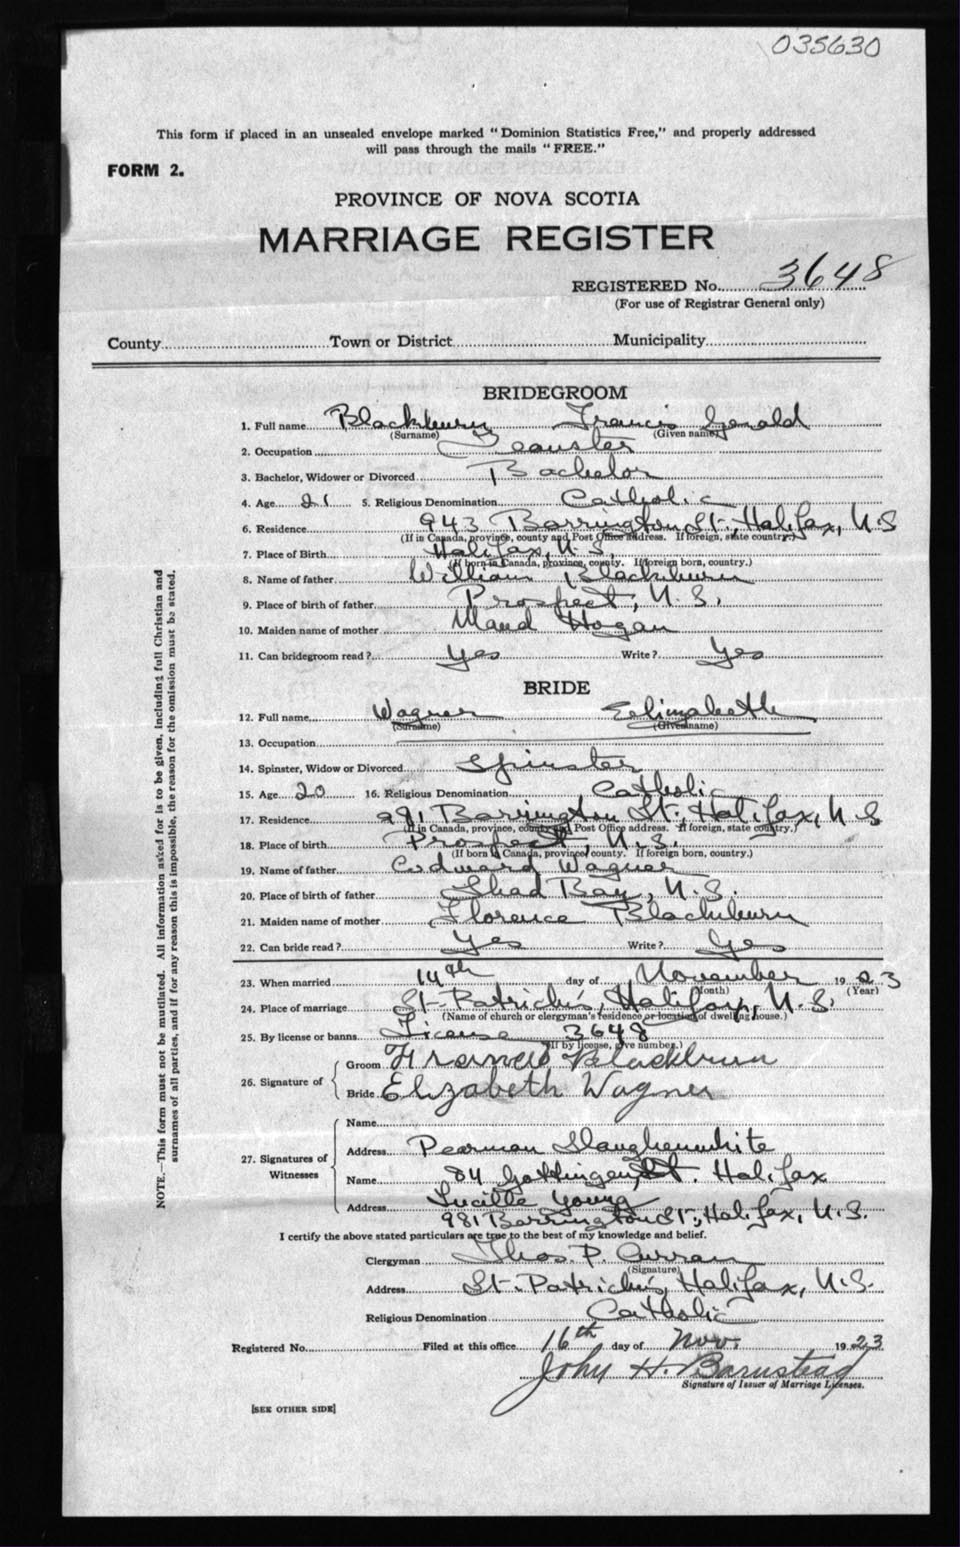 035630
This form if placed in an unsealed envelope marked "Dominion Statistics Free," and properly addressed
will pass through the mails "FREE."
FORM 2.
PROVINCE OF NOVA SCOTIA
MARRIAGE REGISTER
REGISTERED No. 3648
(For use of Registrar General only)
County Town or District Municipality
BRIDEGROOM
1. Full name Blackburn Francis Gerald
(Surname) (Given name)
2. Occupation Teamster
3. Bachelor, Widower or Divorced Bachelor
4. Age 21 5. Religious Denomination Catholic
6. Residence 943 Barrington St., Halifax, N.S
(If in Canada, province, county and Post Office address. If foreign, state country.)
7. Place of Birth Halifax, N.S.
(If born in Canada, province, county. If foreign born, country.)
8. Name of father William Blackburn
9. Place of birth of father Prospect, N.S.
10. Maiden name of mother Maud Hogan
11. Can bridegroom read? Yes Write? Yes
BRIDE
12. Full name Wagner Elizabeth
(Surname) (Given name)
13. Occupation
14. Spinster, Widow or Divorced Spinster
15. Age 20 16. Religious Denomination Catholic
17. Residence 981 Barrington St., Halifax, N.S
(If in Canada, province, county and Post Office address. If foreign, state country.)
18. Place of birth Prospect, N.S.
(If born in Canada, province, county. If foreign born, country.)
19. Name of father Edward Wagner
20. Place of birth of father Shad Bay, N.S.
21. Maiden name of mother Florence Blackburn
22. Can bride read? Yes Write? Yes
23. When married 14th day of November 1923
(Month) (Year)
24. Place of marriage St. Patrick's, Halifax, N.S.
(Name of church or clergyman's residence or location of dwelling house.)
25. By license or banns License 3648
(If by license, give number.)
26. Signature of
Groom Francis Blackburn
Bride Elizabeth Wagner
27. Signatures of Witnesses
Name
Address Pearman Slaughenwhite
Name 84 Gottingen St. Halifax
Address Lucille Young
981 Barrington St., Halifax, N.S.
I certify the above stated particulars are true to the best of my knowledge and belief.
Clergyman Thos. P. Curran
(Signature)
Address St. Patrick's, Halifax, N.S.
Religious Denomination Catholic
Registered No. Filed at this office 16th day of Nov. 1923
John H. Barnstead
Signature of Issuer of Marriage Licenses.
[SEE OTHER SIDE]
NOTE.—This form must not be mutilated. All information asked for is to be given, including full Christian and
surnames of all parties, and if for any reason this is impossible, the reason for the omission must be stated.